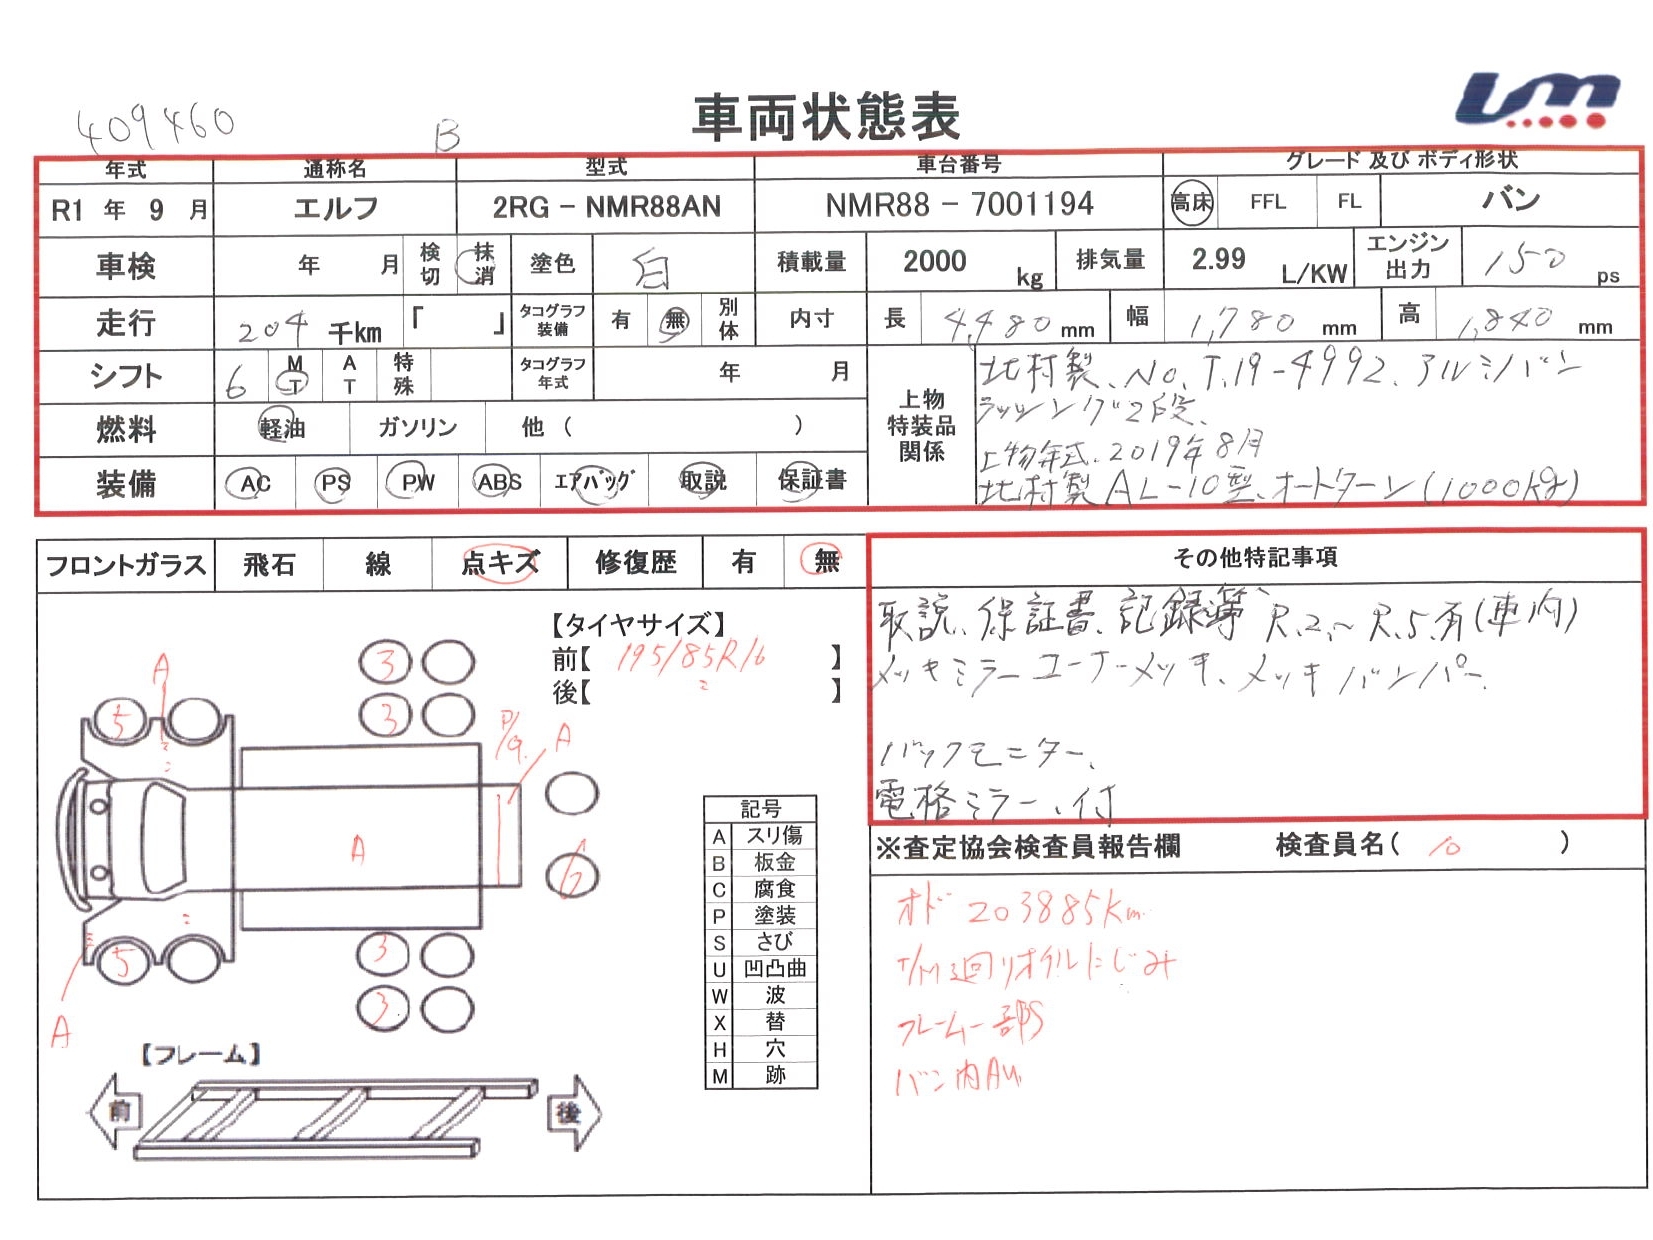 409460
B
車両状態表
UM
年式 通称名 型式 車台番号 グレード 及び ボディ形状
R1 年 9 月 エルフ 2RG - NMR88AN NMR88 - 7001194 高床 FFL FL バン
車検 年 月 検切 抹消 塗色 白 積載量 2000 kg 排気量 2.99 L/KW エンジン出力 150 ps
走行 204 千km 「 」 タコグラフ装備 有 無 別体 内寸 長 4,480 mm 幅 1,780 mm 高 1,840 mm
シフト 6 MT AT 特殊 タコグラフ年式 年 月 上物特装品関係
北村製、No,T,19-4992、アルミバン
ラッシング2段、
上物年式、2019年8月
北村製AL-10型、オートターン(1000kg)
燃料 軽油 ガソリン 他( )
装備 AC PS PW ABS エアバッグ 取説 保証書
フロントガラス 飛石 線 点キズ 修復歴 有 無
その他特記事項
取説、保証書、記録簿 R,2,~R,5,有(車内)
メッキミラーコーナーメッキ、メッキバンパー、
バックモニター、
電格ミラー、付
【タイヤサイズ】
前【 195/85R16 】
後【 〃 】
A
5
3
3
P/G
A
A
6
5
3
3
A
記号
A スリ傷
B 板金
C 腐食
P 塗装
S さび
U 凹凸曲
W 波
X 替
H 穴
M 跡
【フレーム】
前 後
※査定協会検査員報告欄 検査員名( 10 )
オド 203885Km
T/M廻りオイルにじみ
フレーム一部S
バン内AU